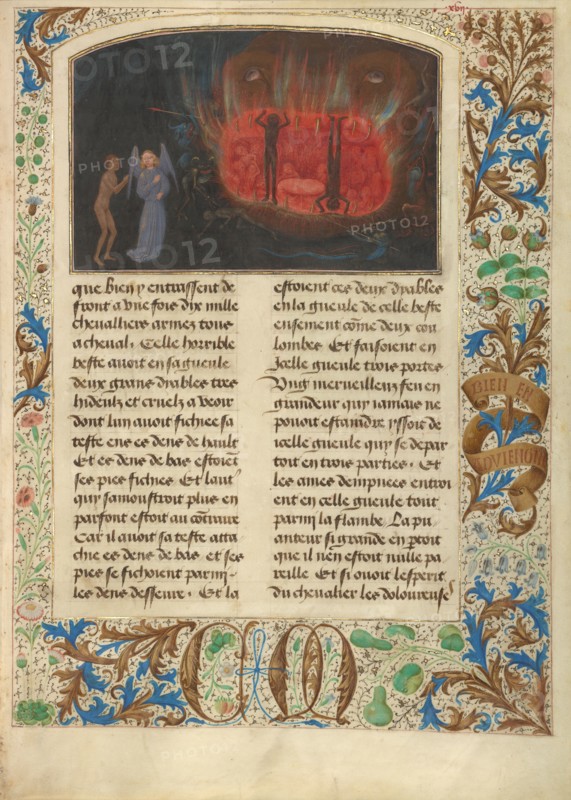 xvii
que bien y entraissent de
front a vne fois dix mille
cheualliers armez tous
a cheual. Celle horrible
beste auoit en sa gueule
deux grans dyables tres
hideulx et cruelz a veoir
dont lun auoit fichiee sa
teste en ces dens de hault
Et es dens de bas estoient
ses pies fichies Et laut
qui samonstroit plus en
parfont estoit au contraire
Car il auoit sa teste atta
chie es dens de bas et ses
pies se fichoient parmy
les dens desseure. Et la
estoient ces deux dyables
en la gueule de celle beste
ensement come deux cou
lombes Et faisoient en
Icelle gueule trois portes
Vng merueilleux feu en
grandeur qui iamais ne
pouoit estaindre yssoit de
icelle gueule qui se depar
toit en trois parties. Et
les ames dempnees entroi
ent en celle gueule tout
parmi la flambe La pu
anteur si grande en p̱toit
que il nen estoit nulle pa
reille Et si ouoit lesperit
du cheualier les doloreuse
BIEN EN
AVIENGNE
C M
PHOTO12